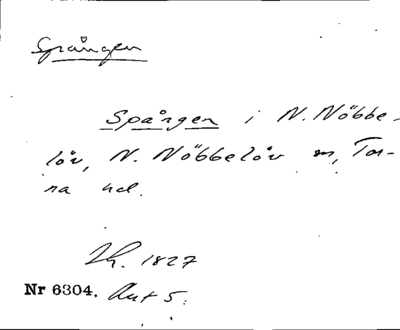 Spången
Spången i N. Nöbbe-
löv, N. Nöbbelöv sn, Tor-
na hd.
1827
Nr 6304. Akt 5.